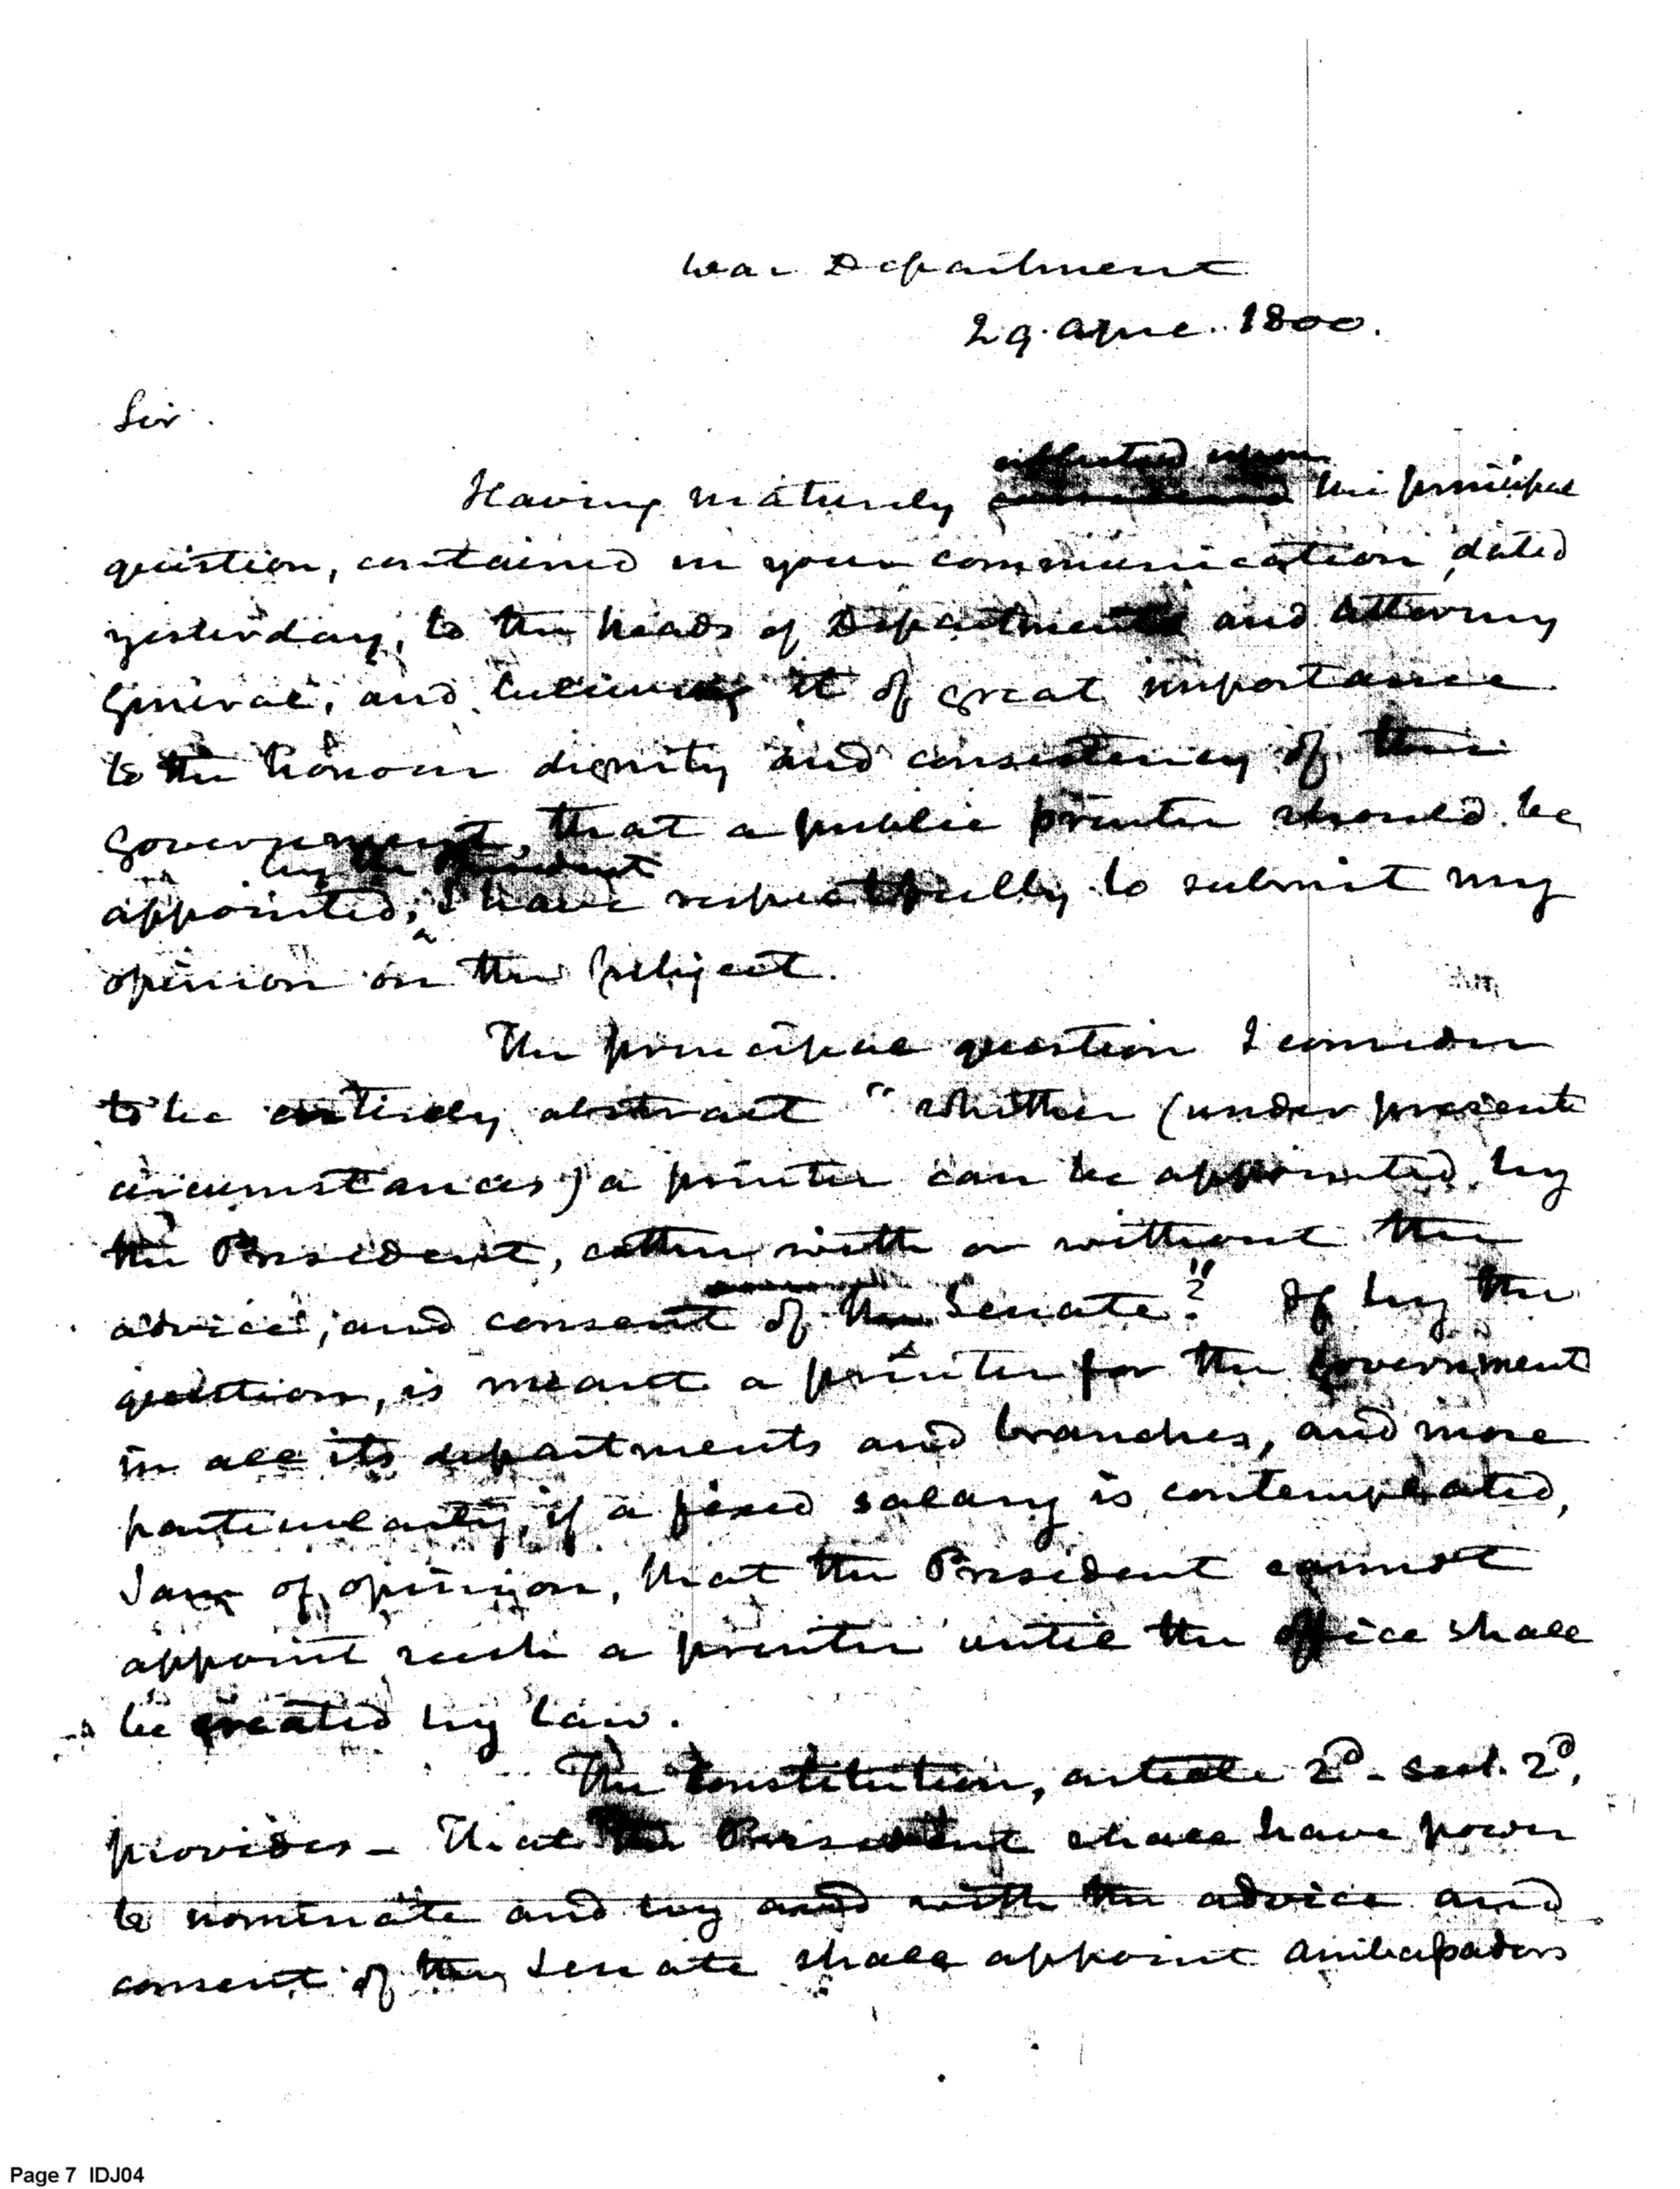 War Department
29. April. 1800.
Sir.
reflected upon
Having maturely the principal
question, contained in your communication, dated
yesterday, to the heads of Departments and Attorney
General, and believing it of great importance
to the honour dignity and consistency of the
Government, that a public printer should be
by the President
appointed, I have respectfully to submit my
opinion on the subject.
The principal question I consider
to be entirely abstract "whether (under present
circumstances) a printer can be appointed by
the President, either with or without the
advice, and consent of the Senate?" If by the
question, is meant a printer for the Government
in all its departments and branches, and more
particularly, if a fixed salary is contemplated,
I am of opinion, that the President cannot
appoint such a printer until the office shall
be created by law.
The Constitution, article 2d. sect. 2d,
provides - That the President shall have power
to nominate and by and with the advice and
consent of the Senate shall appoint Ambassadors
Page 7 IDJ04